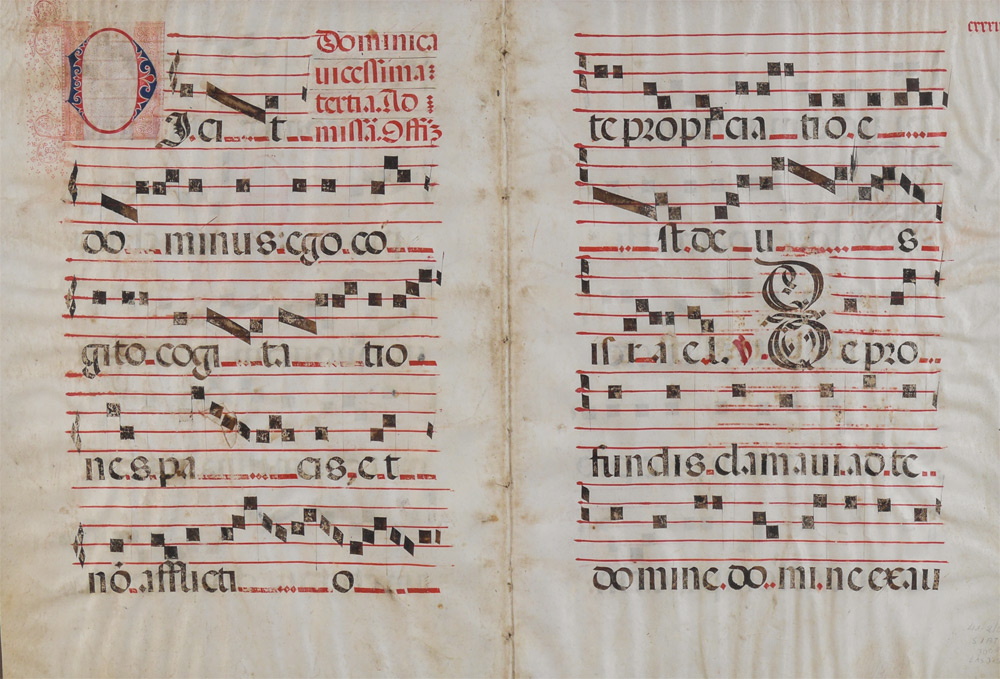 Dominica
uicessima
tertia. Ad
missã. Offiz
DI.ci t
do minus.ego.co
gito.cogi ta tio
nes.pa cis,e.t
nō.afflicti o
te propi cia tio.e
st.de u s
isrrael. V. De pro
fundis.clamaui.ad.te
domine.do.mi.ne exau